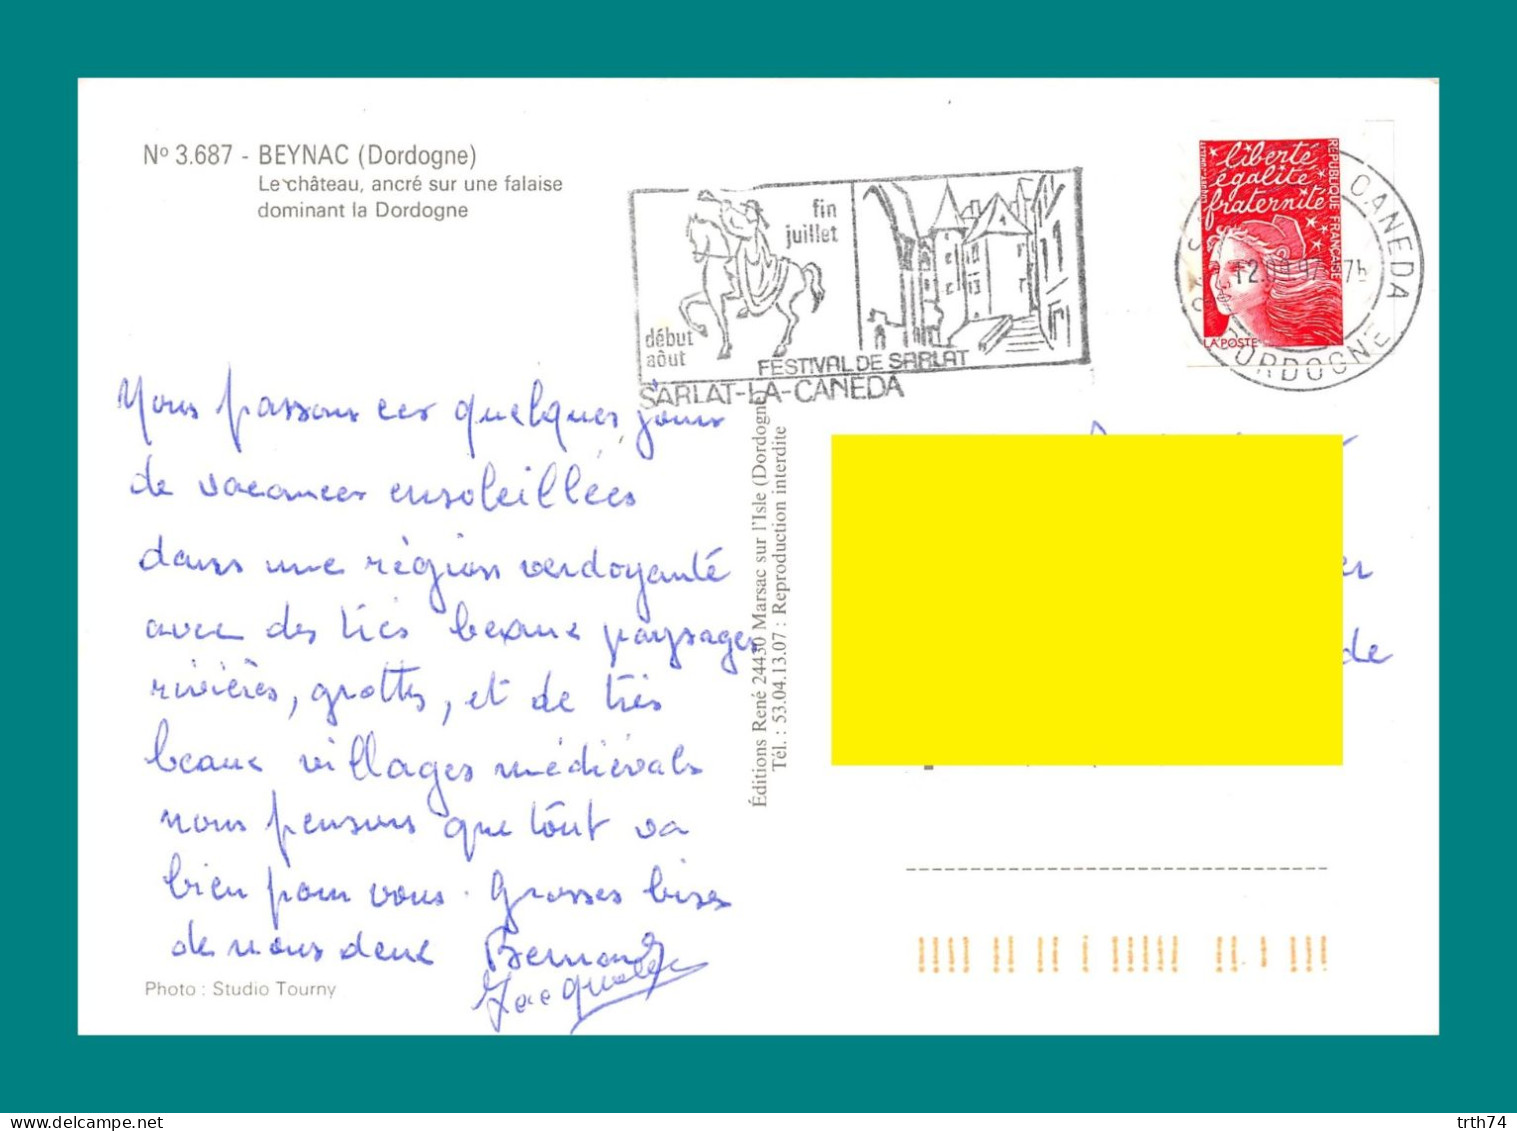 Nº 3.687 - BEYNAC (Dordogne)
Le château, ancré sur une falaise
dominant la Dordogne
fin
juillet
début
août
FESTIVAL DE SARLAT
SARLAT-LA-CANEDA
liberté
égalité
fraternité
REPUBLIQUE FRANÇAISE
LA POSTE
CANEDA
DORDOGNE
Nous passons ces quelques jours
de vacances ensoleillées
dans une région verdoyante
avec des très beaux paysages
rivières, grottes, et de très
beaux villages médiévals
nous pensons que tout va
bien pour vous. Grosses bises
de nous deux Bernard
Jacqueline
Éditions René 24430 Marsac sur l'Isle (Dordogne
Tél. : 53.04.13.07 : Reproduction interdite
er
de
Photo : Studio Tourny
delcampe.net
trth74